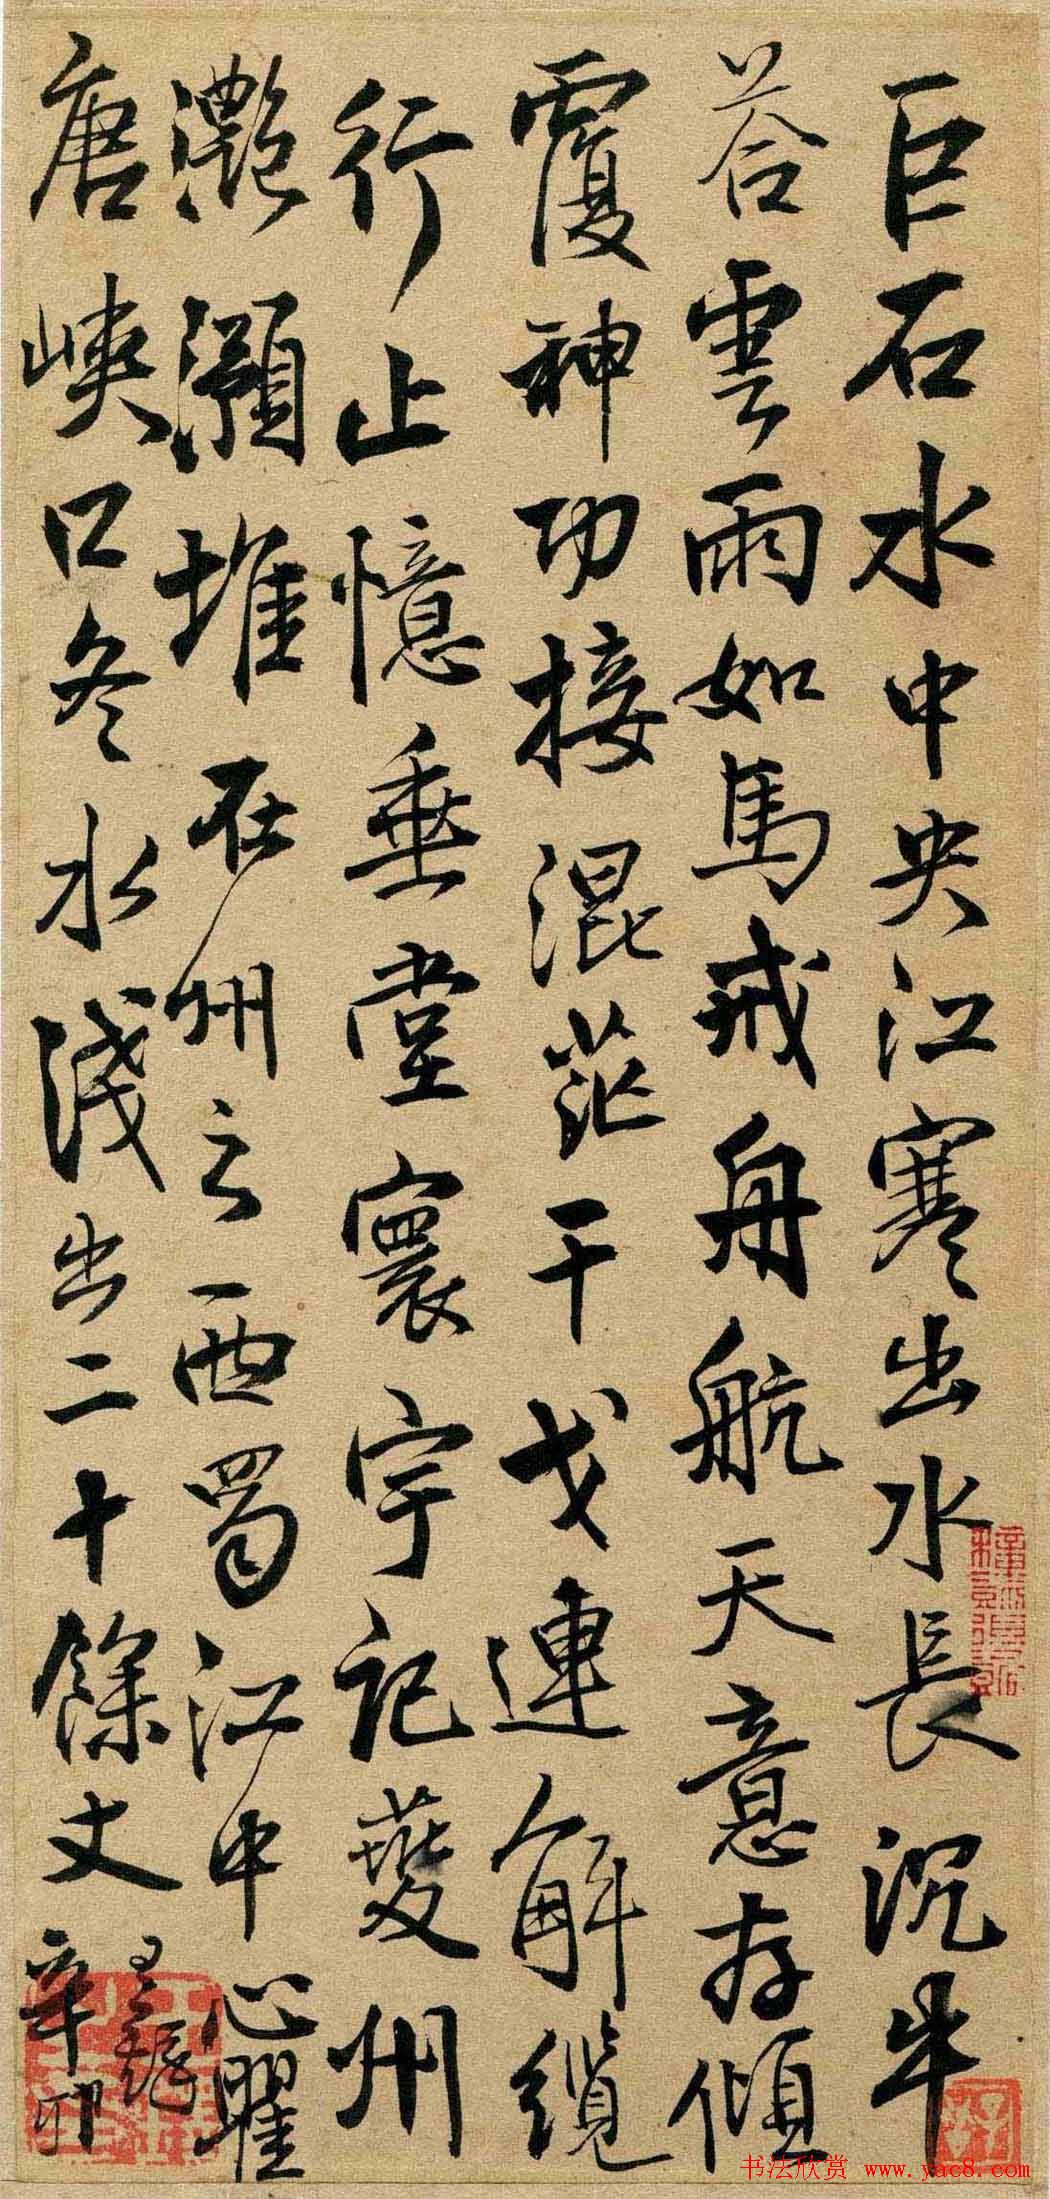 巨石水中央江寒出水長沉牛
荅雲雨如馬戒舟航天意存傾
覆神功接混茫干戈連解纜
行止憶垂堂寰宇記夔州
灔澦堆在州之西蜀江中心曜
唐峽口冬水淺出二十餘丈
辛卯
王鐸
书法欣赏 www.yac8.com